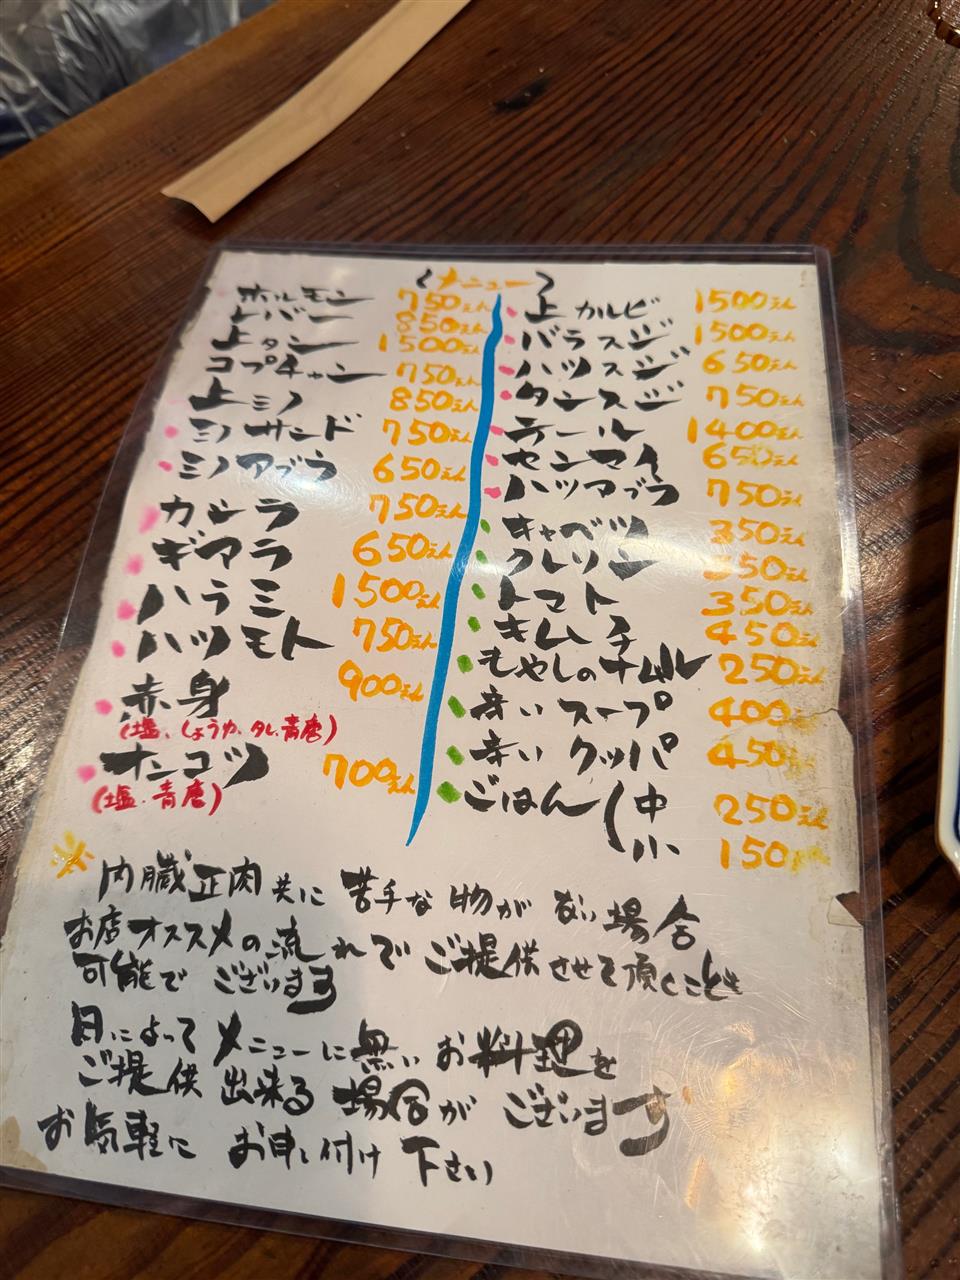 (メニュー)
ホルモン 750えん
レバー 850えん
上タン 1500えん
コプチャン 750えん
上ミノ 850えん
ミノサンド 750えん
ミノアブラ 650えん
カルラ 750えん
ギアラ 650えん
ハラミ 1500えん
ハツモト 750えん
赤身 900えん
(塩、しょうが、タレ、青唐)
ナンコツ 700えん
(塩、青唐)
上カルビ 1500えん
バラスジ 1500えん
ハツスジ 650えん
タンスジ 750えん
テール 1400えん
センマイ 650えん
ハツアブラ 750えん
キャベツ 350えん
クレソン 350えん
トマト 350えん
キムチ 450えん
もやしのナムル 250えん
辛いスープ 400えん
辛いクッパ 450えん
ごはん(中 250えん
小 150えん
※内臓正肉共に苦手な物が無い場合
お店オススメの流れでご提供させて頂くことも
可能でございます
日によってメニューに無いお料理を
ご提供出来る場合がございます
お気軽にお申し付け下さい